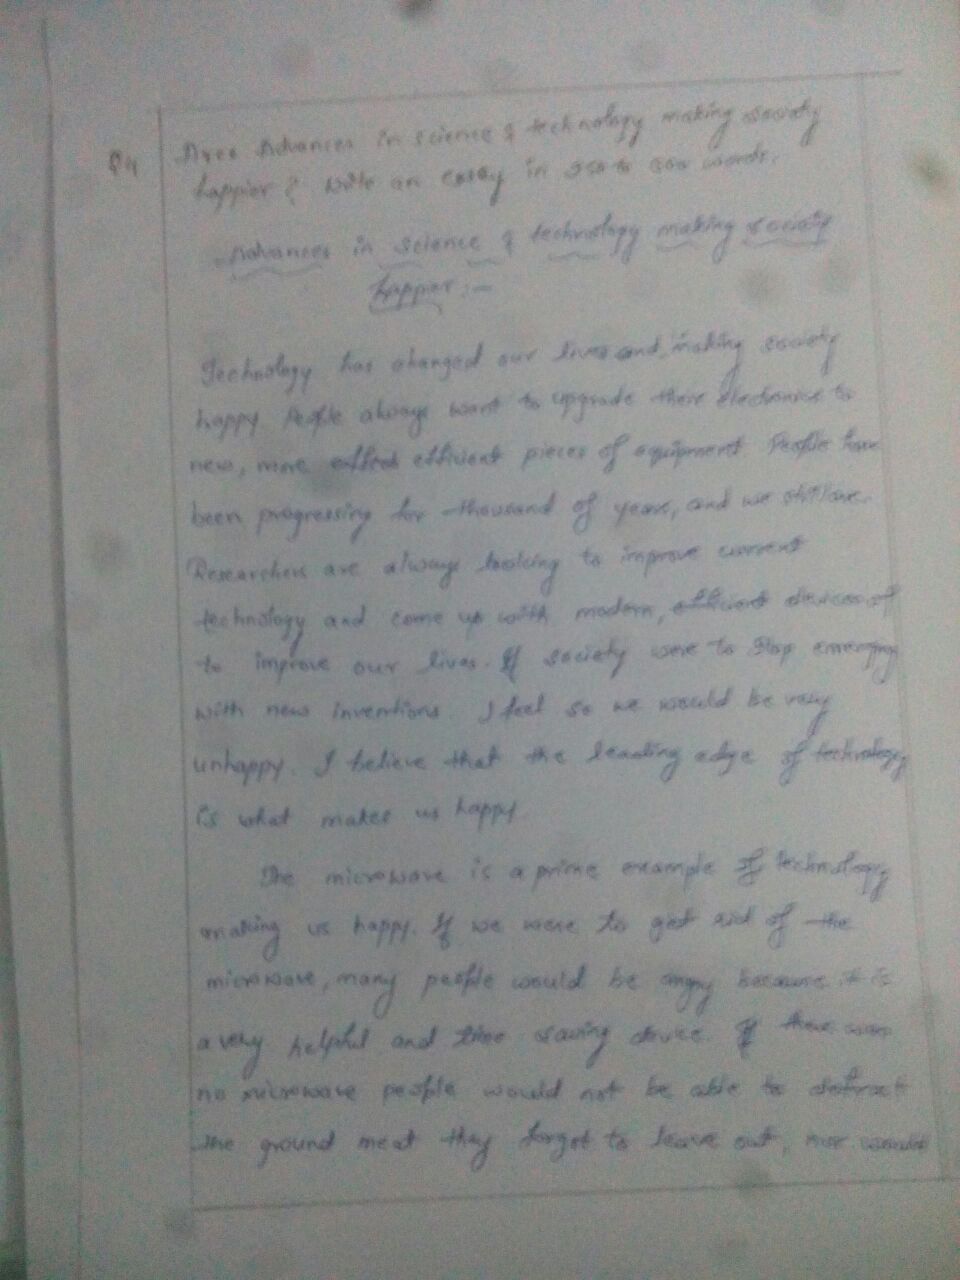 Q4 Are Advances in science & technology making society
happier? Write an essay in 250 to 300 words.
Advances in science & technology making society
happier :-
Technology has changed our lives and, making society
happy People always want to upgrade there electronics to
new, more efficient pieces of equipment. People have
been progressing for thousand of years, and we still are.
Researchers are always looking to improve current
technology and come up with modern, efficient devices of
to improve our lives. If society were to stop emerging
with new inventions. I feel so we would be very
unhappy. I believe that the leading edge of technology
is what makes us happy.
The microwave is a prime example of technology
making us happy. If we were to get rid of the
microwave, many people would be angry because it is
a very helpful and time saving device. If there was
no microwave people would not be able to defrost
the ground meat they forgot to leave out, nor would